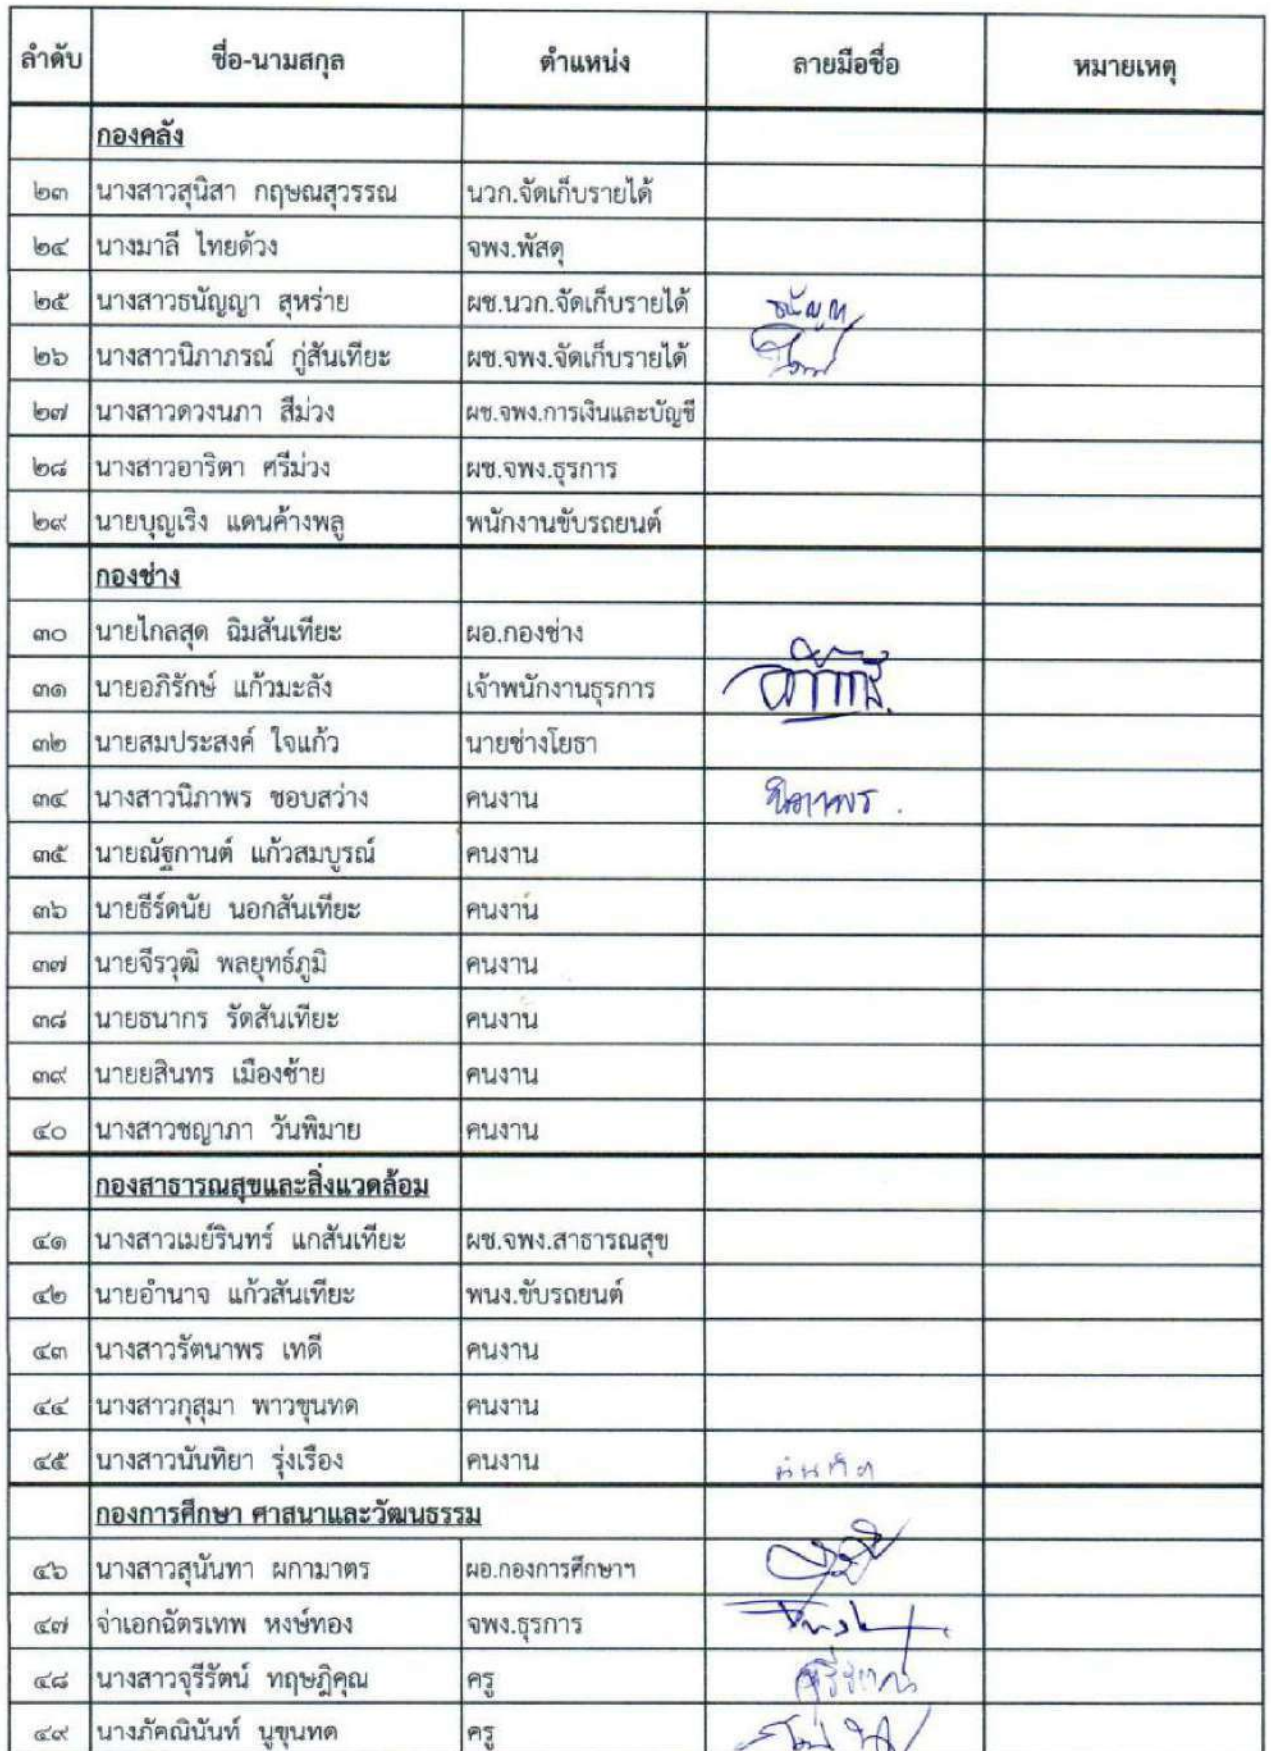 ลำดับ ชื่อ-นามสกุล ตำแหน่ง ลายมือชื่อ หมายเหตุ
กองคลัง
๒๓ นางสาวสุนิสา กฤษณสุวรรณ นวก.จัดเก็บรายได้
๒๔ นางมาลี ไทยด้วง จพง.พัสดุ
๒๕ นางสาวธนัญญา สุหร่าย ผช.นวก.จัดเก็บรายได้
๒๖ นางสาวนิภาภรณ์ กู่สันเทียะ ผช.จพง.จัดเก็บรายได้
๒๗ นางสาวดวงนภา สีม่วง ผช.จพง.การเงินและบัญชี
๒๘ นางสาวอาริตา ศรีม่วง ผช.จพง.ธุรการ
๒๙ นายบุญเริง แดนค้างพลู พนักงานขับรถยนต์
กองช่าง
๓๐ นายไกลสุด ฉิมสันเทียะ ผอ.กองช่าง
๓๑ นายอภิรักษ์ แก้วมะลัง เจ้าพนักงานธุรการ
๓๒ นายสมประสงค์ ใจแก้ว นายช่างโยธา
๓๔ นางสาวนิภาพร ชอบสว่าง คนงาน นิภาพร
๓๕ นายณัฐกานต์ แก้วสมบูรณ์ คนงาน
๓๖ นายธีร์ดนัย นอกสันเทียะ คนงาน
๓๗ นายจีรวุฒิ พลยุทธ์ภูมิ คนงาน
๓๘ นายธนากร รัตสันเทียะ คนงาน
๓๙ นายยสินทร เมืองซ้าย คนงาน
๔๐ นางสาวชญาภา วันพิมาย คนงาน
กองสาธารณสุขและสิ่งแวดล้อม
๔๑ นางสาวเมย์รินทร์ แกสันเทียะ ผช.จพง.สาธารณสุข
๔๒ นายอำนาจ แก้วสันเทียะ พนง.ขับรถยนต์
๔๓ นางสาวรัตนาพร เทดี คนงาน
๔๔ นางสาวกุสุมา พาวขุนทด คนงาน
๔๕ นางสาวนันทิยา รุ่งเรือง คนงาน
กองการศึกษา ศาสนาและวัฒนธรรม
๔๖ นางสาวสุนันทา ผกามาตร ผอ.กองการศึกษาฯ
๔๗ จ่าเอกฉัตรเทพ หงษ์ทอง จพง.ธุรการ
๔๘ นางสาวจุรีรัตน์ ทฤษฎิคุณ ครู
๔๙ นางภัคณินันท์ นูขุนทด ครู